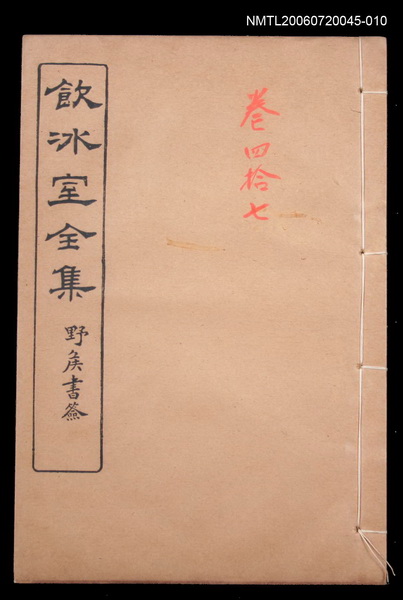 NMTL20060720045-010
卷四拾七
飲冰室全集
野侯書簽